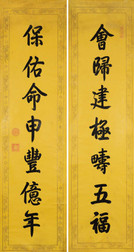 會歸建極疇五福
保佑命申豐億年